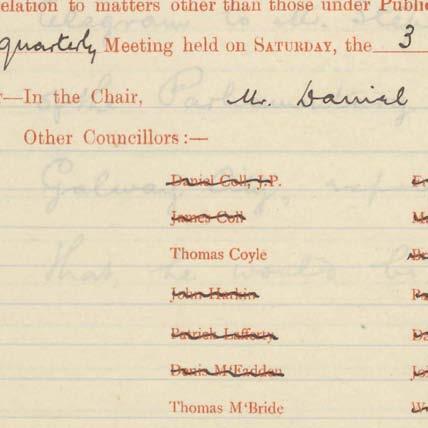 elation to matters other than those under Public
quarterly Meeting held on SATURDAY, the 3
—In the Chair, Mr. Daniel
Other Councillors:—
Daniel Coll, J.P.
James Coll
Thomas Coyle
John Harkin
Patrick Lafferty
Denis M'Fadden
Thomas M'Bride